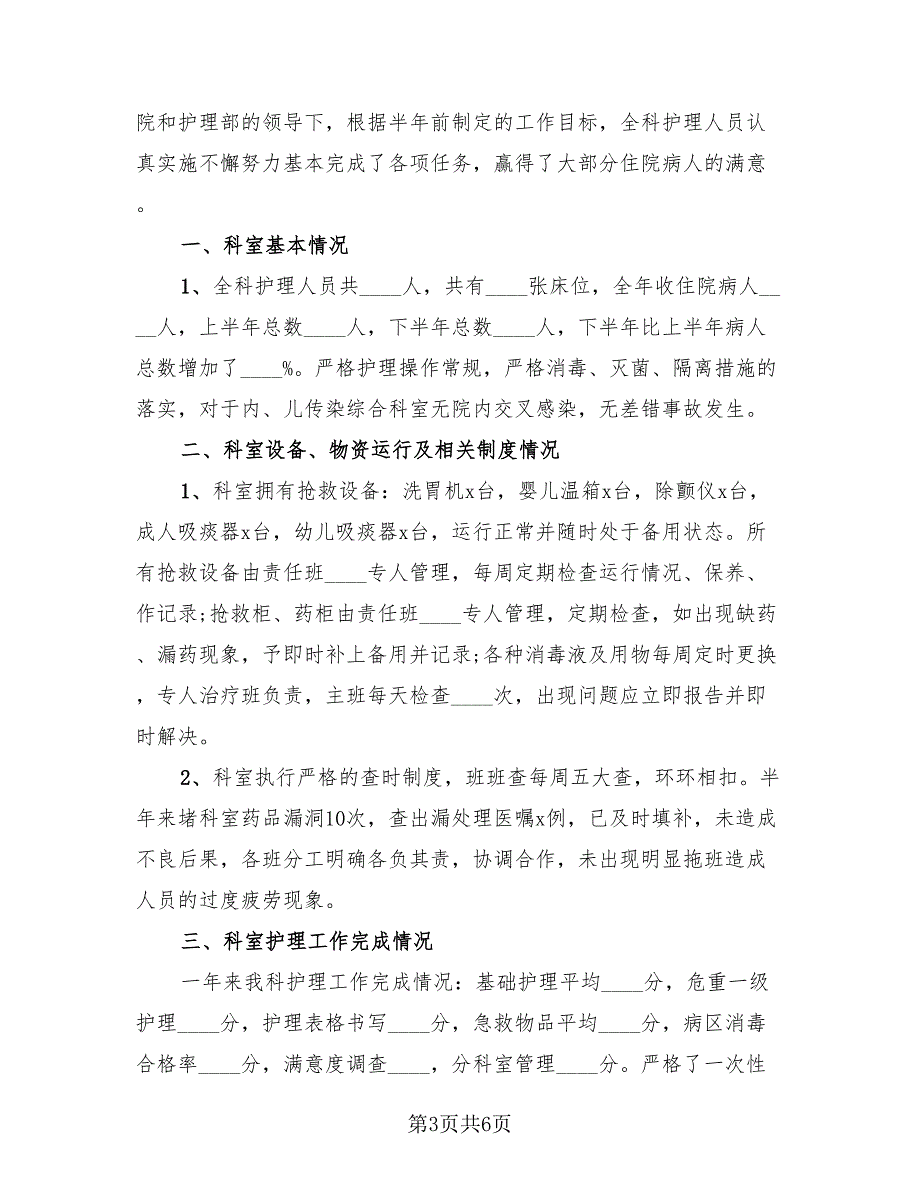 院和护理部的领导下，根据半年前制定的工作目标，全科护理人员认
真实施不懈努力基本完成了各项任务，赢得了大部分住院病人的满意
。
一、科室基本情况
1、全科护理人员共____人，共有____张床位，全年收住院病人__
__人，上半年总数____人，下半年总数____人，下半年比上半年病人
总数增加了____%。严格护理操作常规，严格消毒、灭菌、隔离措施的
落实，对于内、儿传染综合科室无院内交叉感染，无差错事故发生。
二、科室设备、物资运行及相关制度情况
1、科室拥有抢救设备：洗胃机x台，婴儿温箱x台，除颤仪x台，
成人吸痰器x台，幼儿吸痰器x台，运行正常并随时处于备用状态。所
有抢救设备由责任班____专人管理，每周定期检查运行情况、保养、
作记录;抢救柜、药柜由责任班____专人管理，定期检查，如出现缺药
、漏药现象，予即时补上备用并记录;各种消毒液及用物每周定时更换
，专人治疗班负责，主班每天检查____次，出现问题应立即报告并即
时解决。
2、科室执行严格的查时制度，班班查每周五大查，环环相扣。半
年来堵科室药品漏洞10次，查出漏处理医嘱x例，已及时填补，未造成
不良后果，各班分工明确各负其责，协调合作，未出现明显拖班造成
人员的过度疲劳现象。
三、科室护理工作完成情况
一年来我科护理工作完成情况：基础护理平均____分，危重一级
护理____分，护理表格书写____分，急救物品平均____分，病区消毒
合格率____分，满意度调查____，分科室管理____分。严格了一次性
第3页共6页